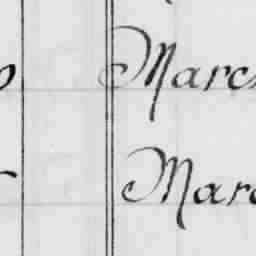 Marc
Marc